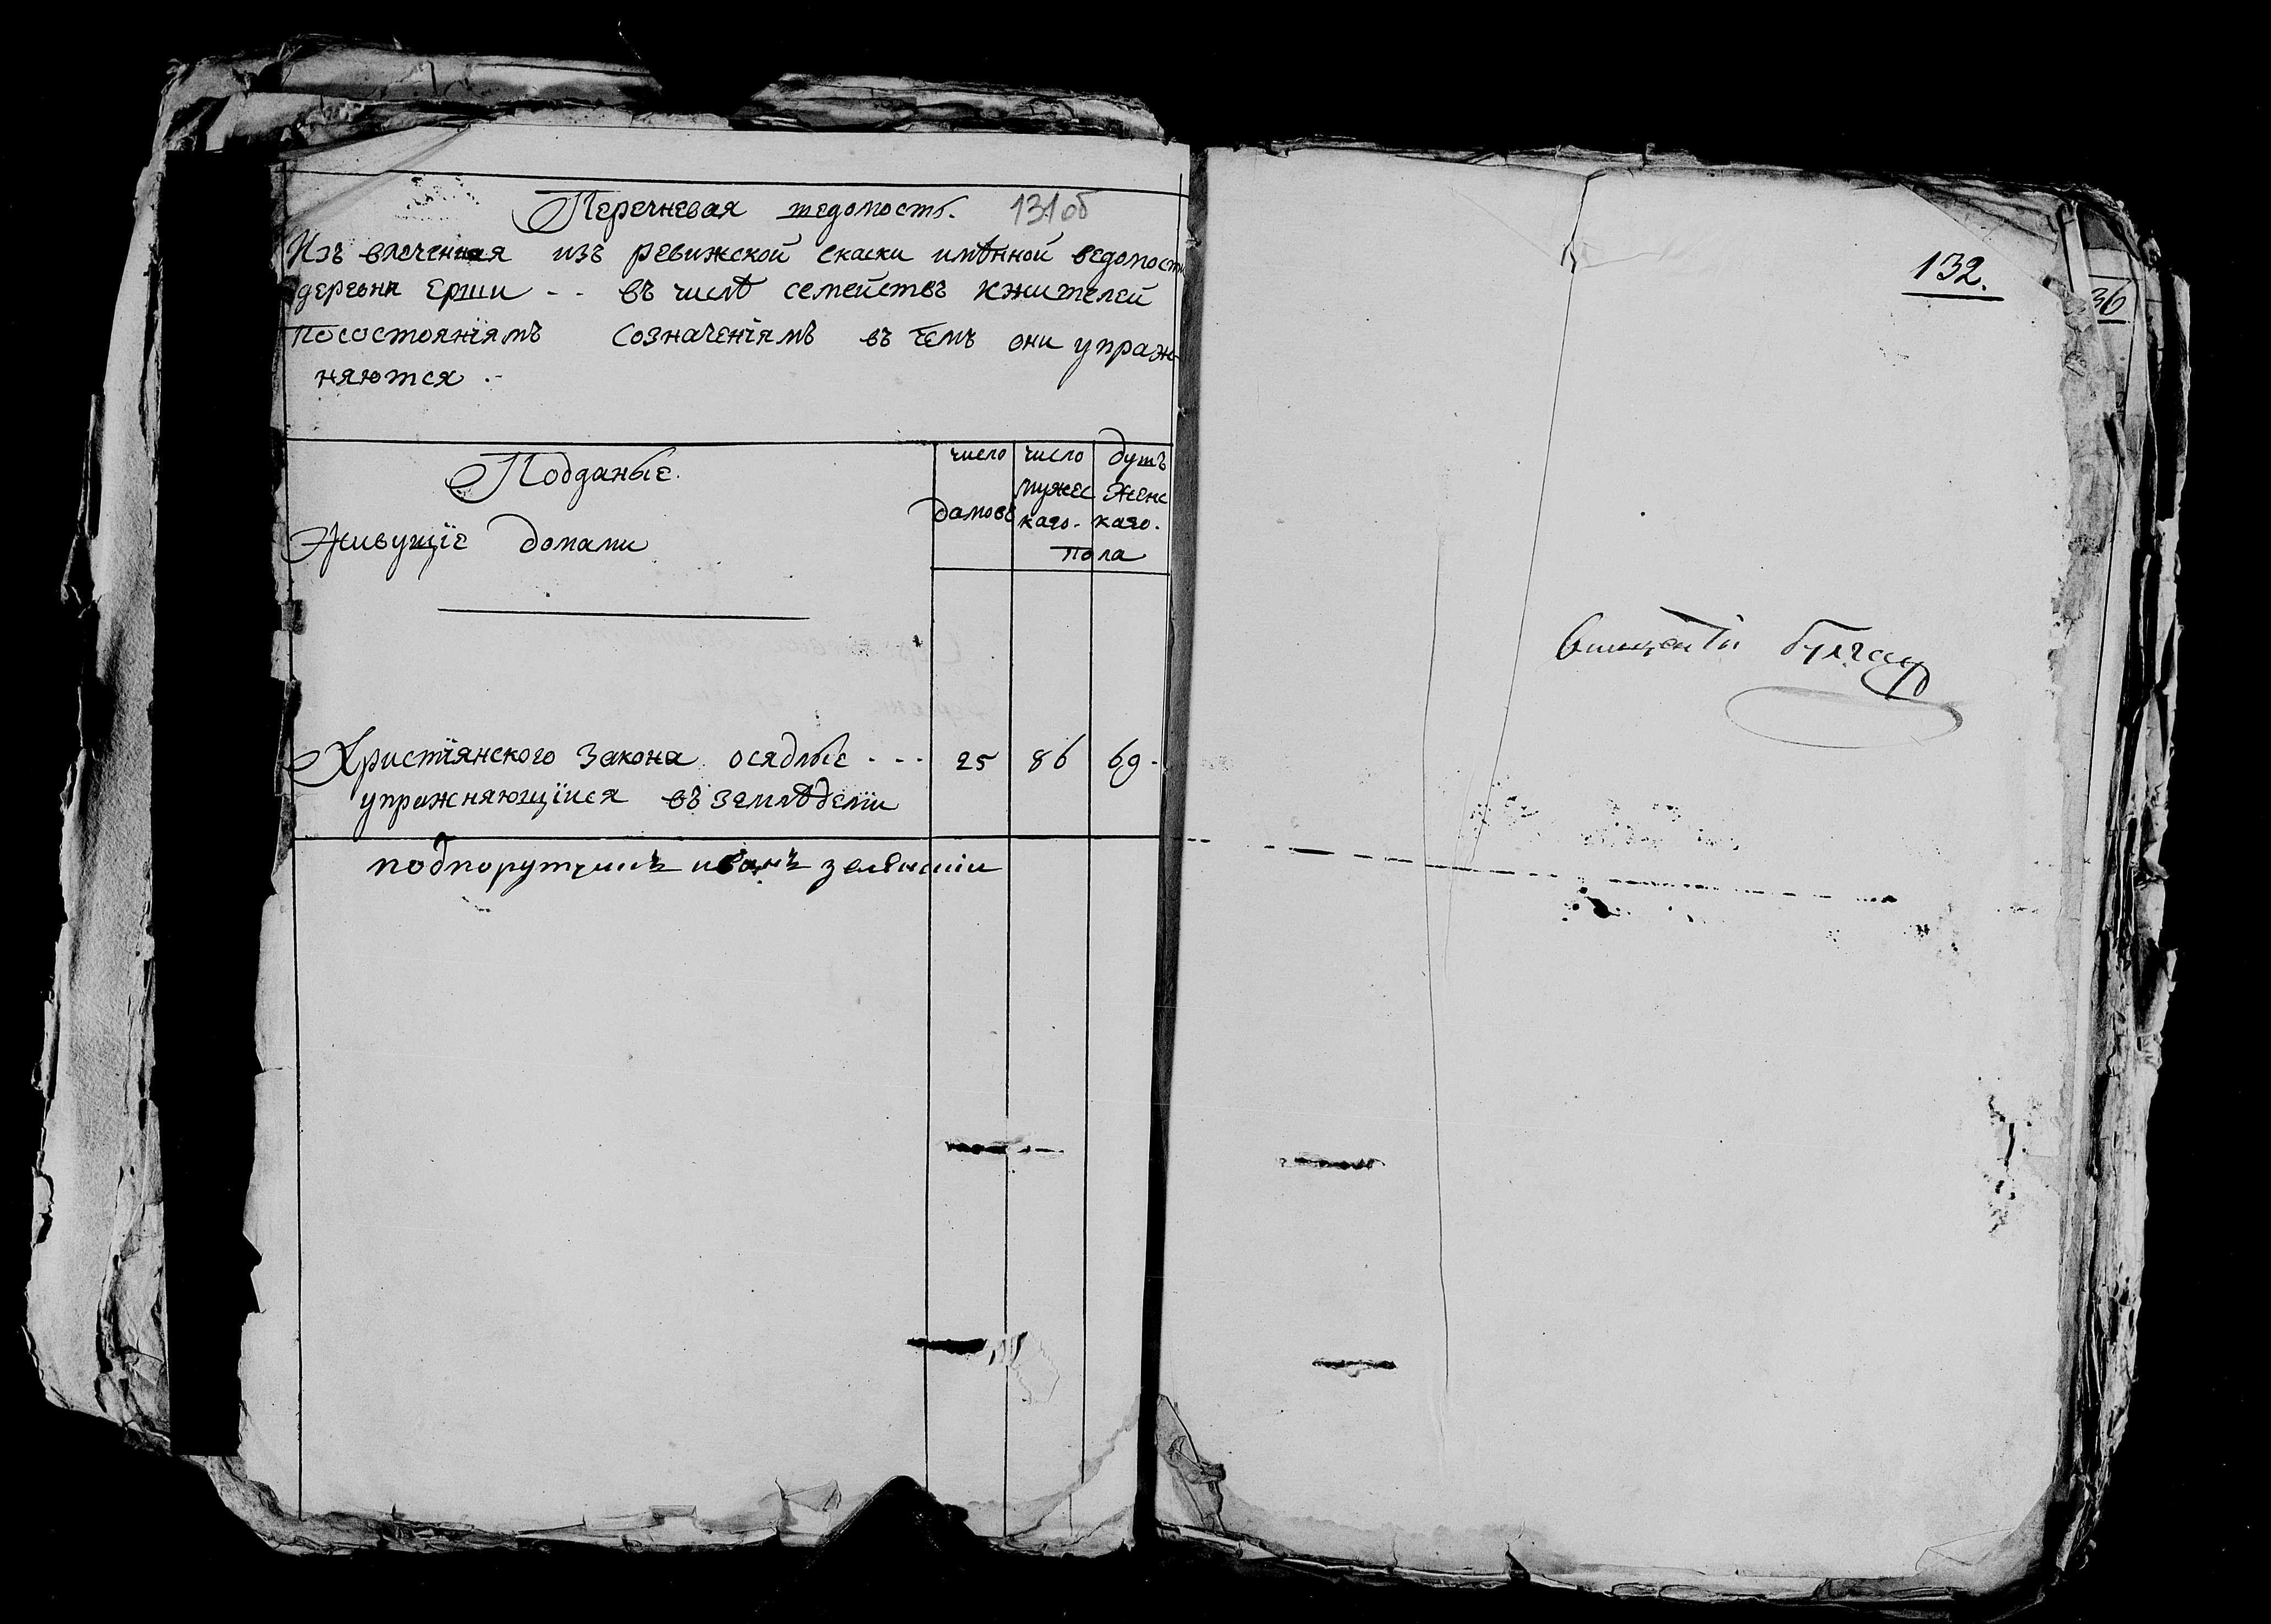 Перечневая ведомость. 131об
Изъ влеченная изъ ревижской скаски имѣнной ведомости
деревни Ерши - - въ числѣ семействъ ижителей
посостояніямъ созначеніямъ въ чемъ они упраж
няются .-
Подданые.
Живущіе домами
число домовъ
число мужес каго.
душъ женс каго.
пола
Христіянского закона осядлые - - - 25 86 69.
упражняющіися въ земледеліи
подпорутчикъ иванъ
132.
36